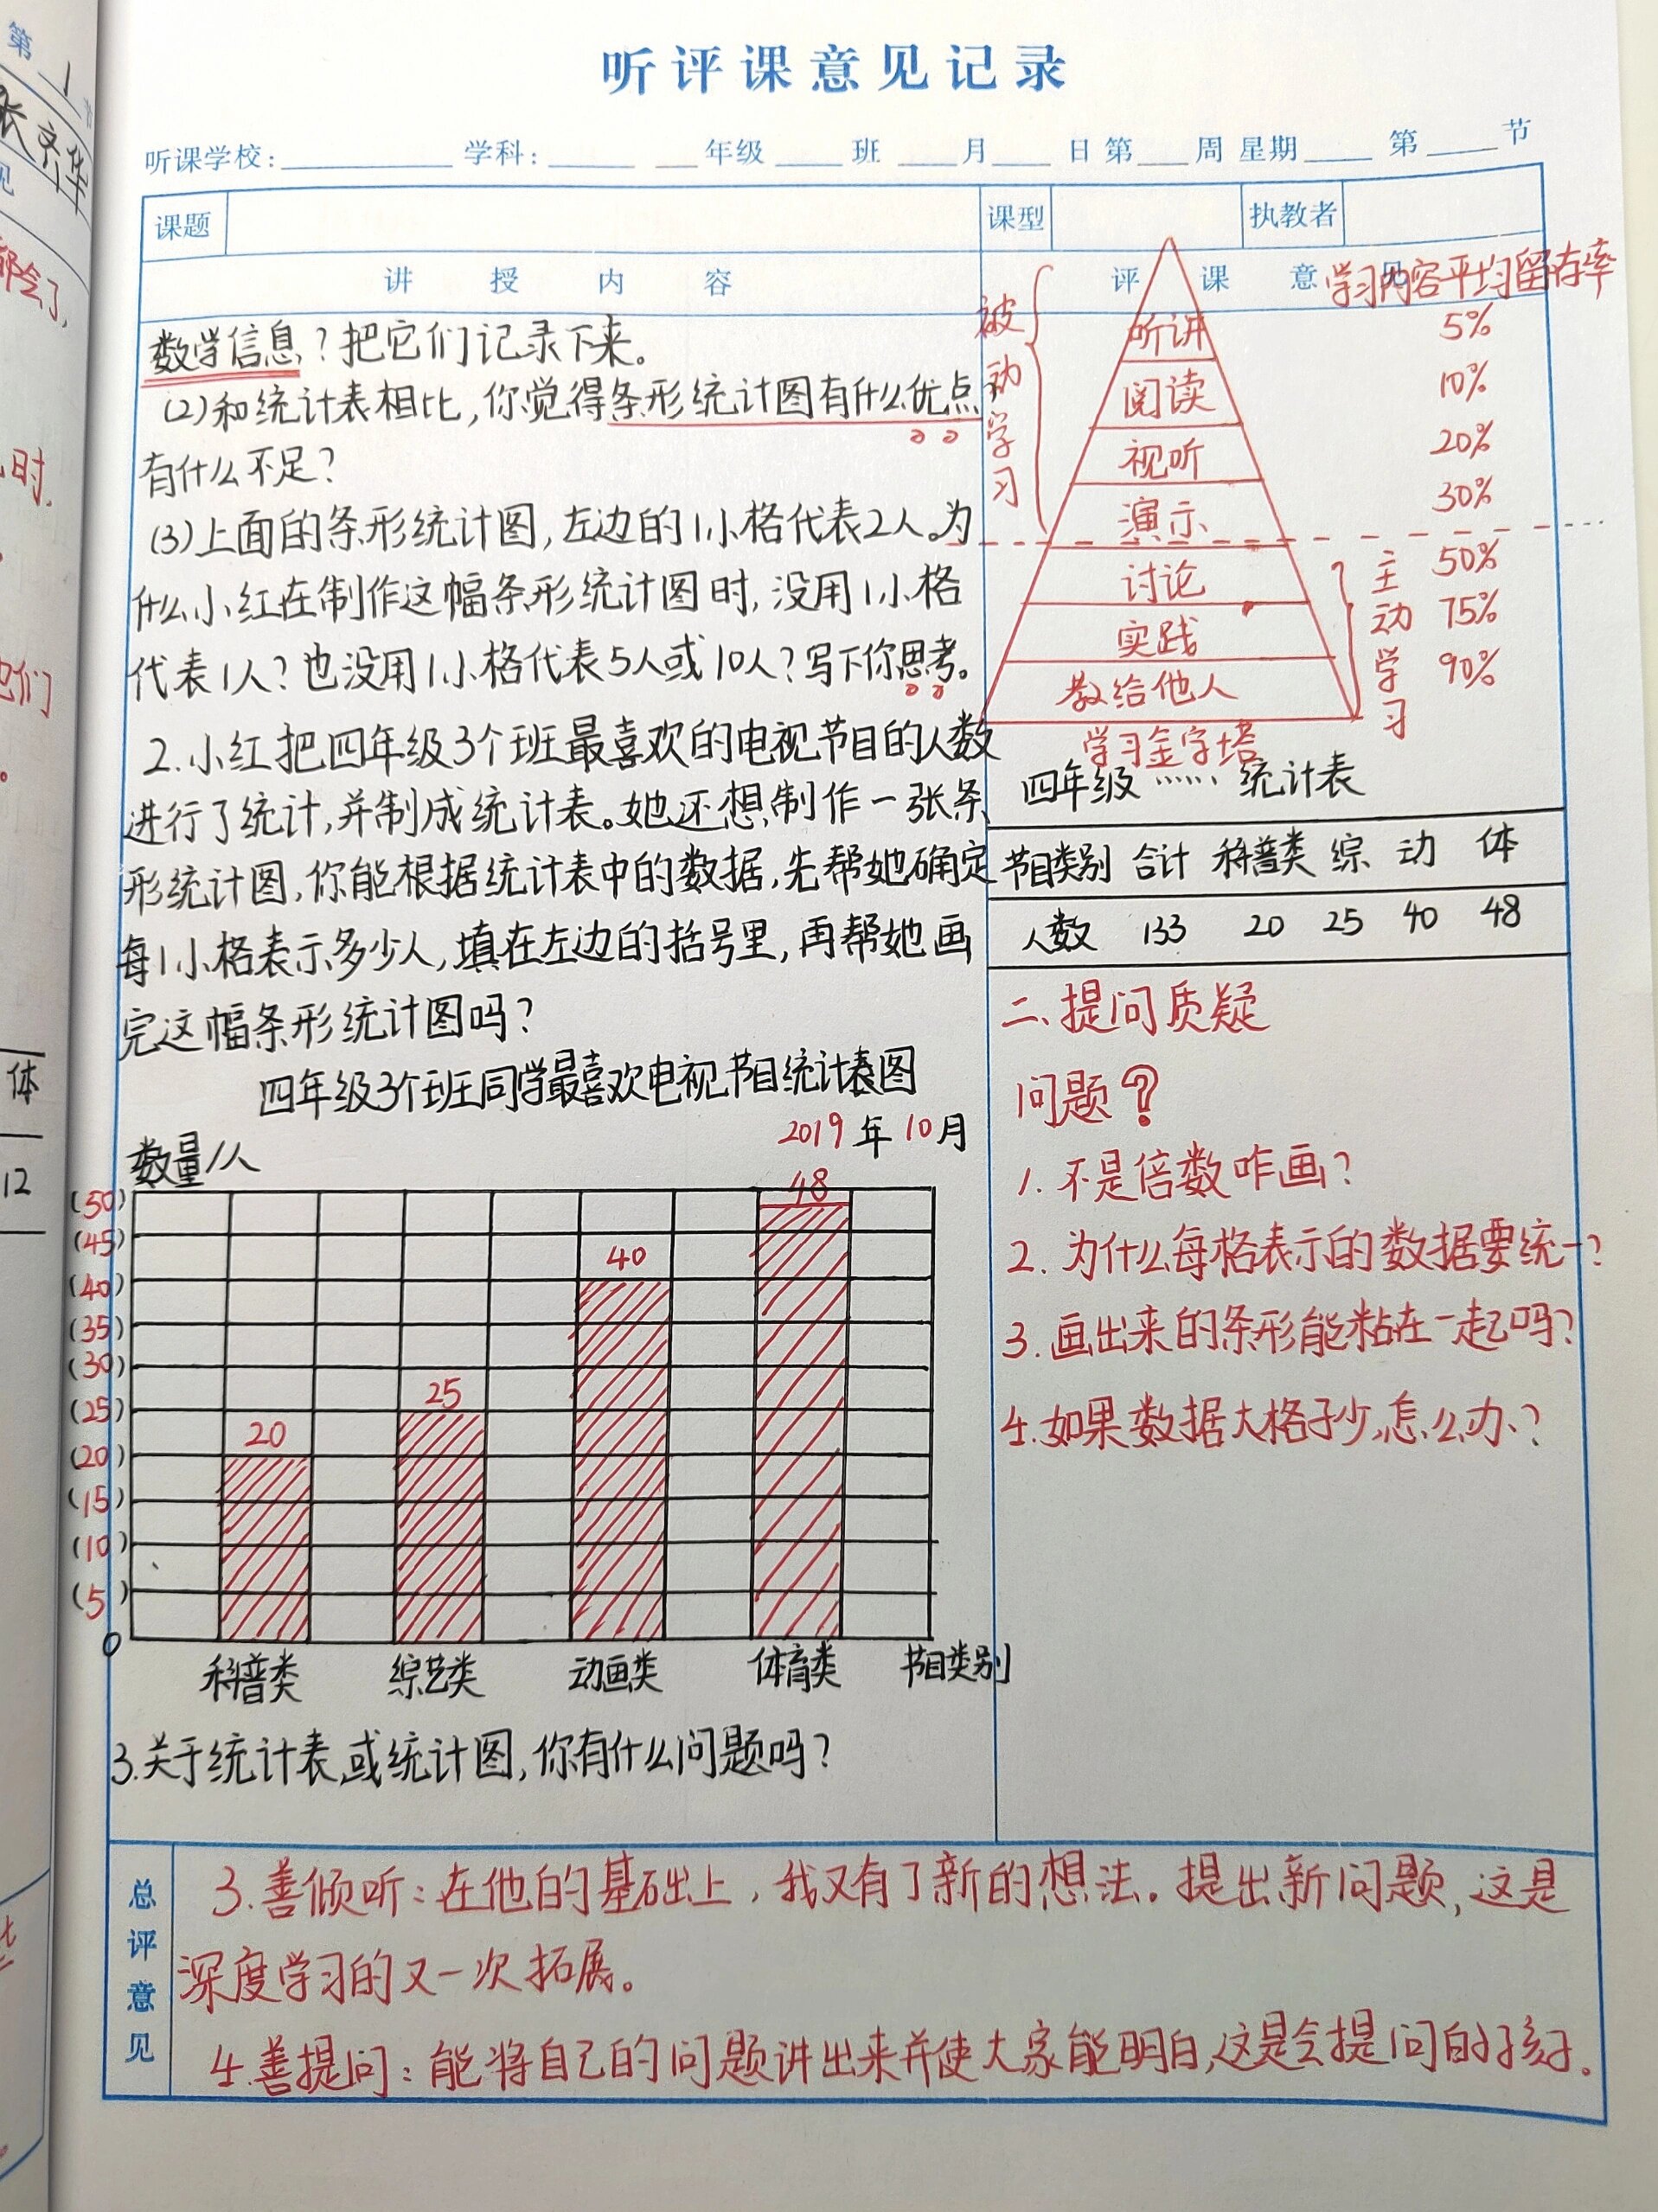 听评课意见记录
听课学校: 学科: 年级 班 月 日 第 周 星期 第 节
课题 课型 执教者
讲授内容 评课意见
数学信息?把它们记录下来。
(2)和统计表相比,你觉得条形统计图有什么优点
有什么不足?
(3)上面的条形统计图,左边的1小格代表2人。为
什么小红在制作这幅条形统计图时,没用1小格
代表1人?也没用1小格代表5人或10人?写下你思考。
2.小红把四年级3个班最喜欢的电视节目的人数
进行了统计,并制成统计表。她还想制作一张条
形统计图,你能根据统计表中的数据,先帮她确定
每1小格表示多少人,填在左边的括号里,再帮她画
完这幅条形统计图吗?
四年级3个班同学最喜欢电视节目统计表图
2019年10月
数量/人
(50)
(45)
(40)
(35)
(30)
(25)
(20)
(15)
(10)
(5)
0
20
25
40
48
科普类 综艺类 动画类 体育类 节目类别
3.关于统计表或统计图,你有什么问题吗?
学习内容平均留存率
被动学习
听讲 5%
阅读 10%
视听 20%
演示 30%
讨论 50%
实践 75%
教给他人 90%
主动学习
学习金字塔
四年级……统计表
节目类别 合计 科普类 综 动 体
人数 133 20 25 40 48
二、提问质疑
问题?
1.不是倍数咋画?
2.为什么每格表示的数据要统一?
3.画出来的条形能粘在一起吗?
4.如果数据大格子少,怎么办?
总评意见
3.善倾听:在他的基础上,我又有了新的想法。提出新问题,这是
深度学习的又一次拓展。
4.善提问:能将自己的问题讲出来并使大家能明白,这是会提问的孩子。
第1节
张齐华
见
都会了,
时,
他们
体
12